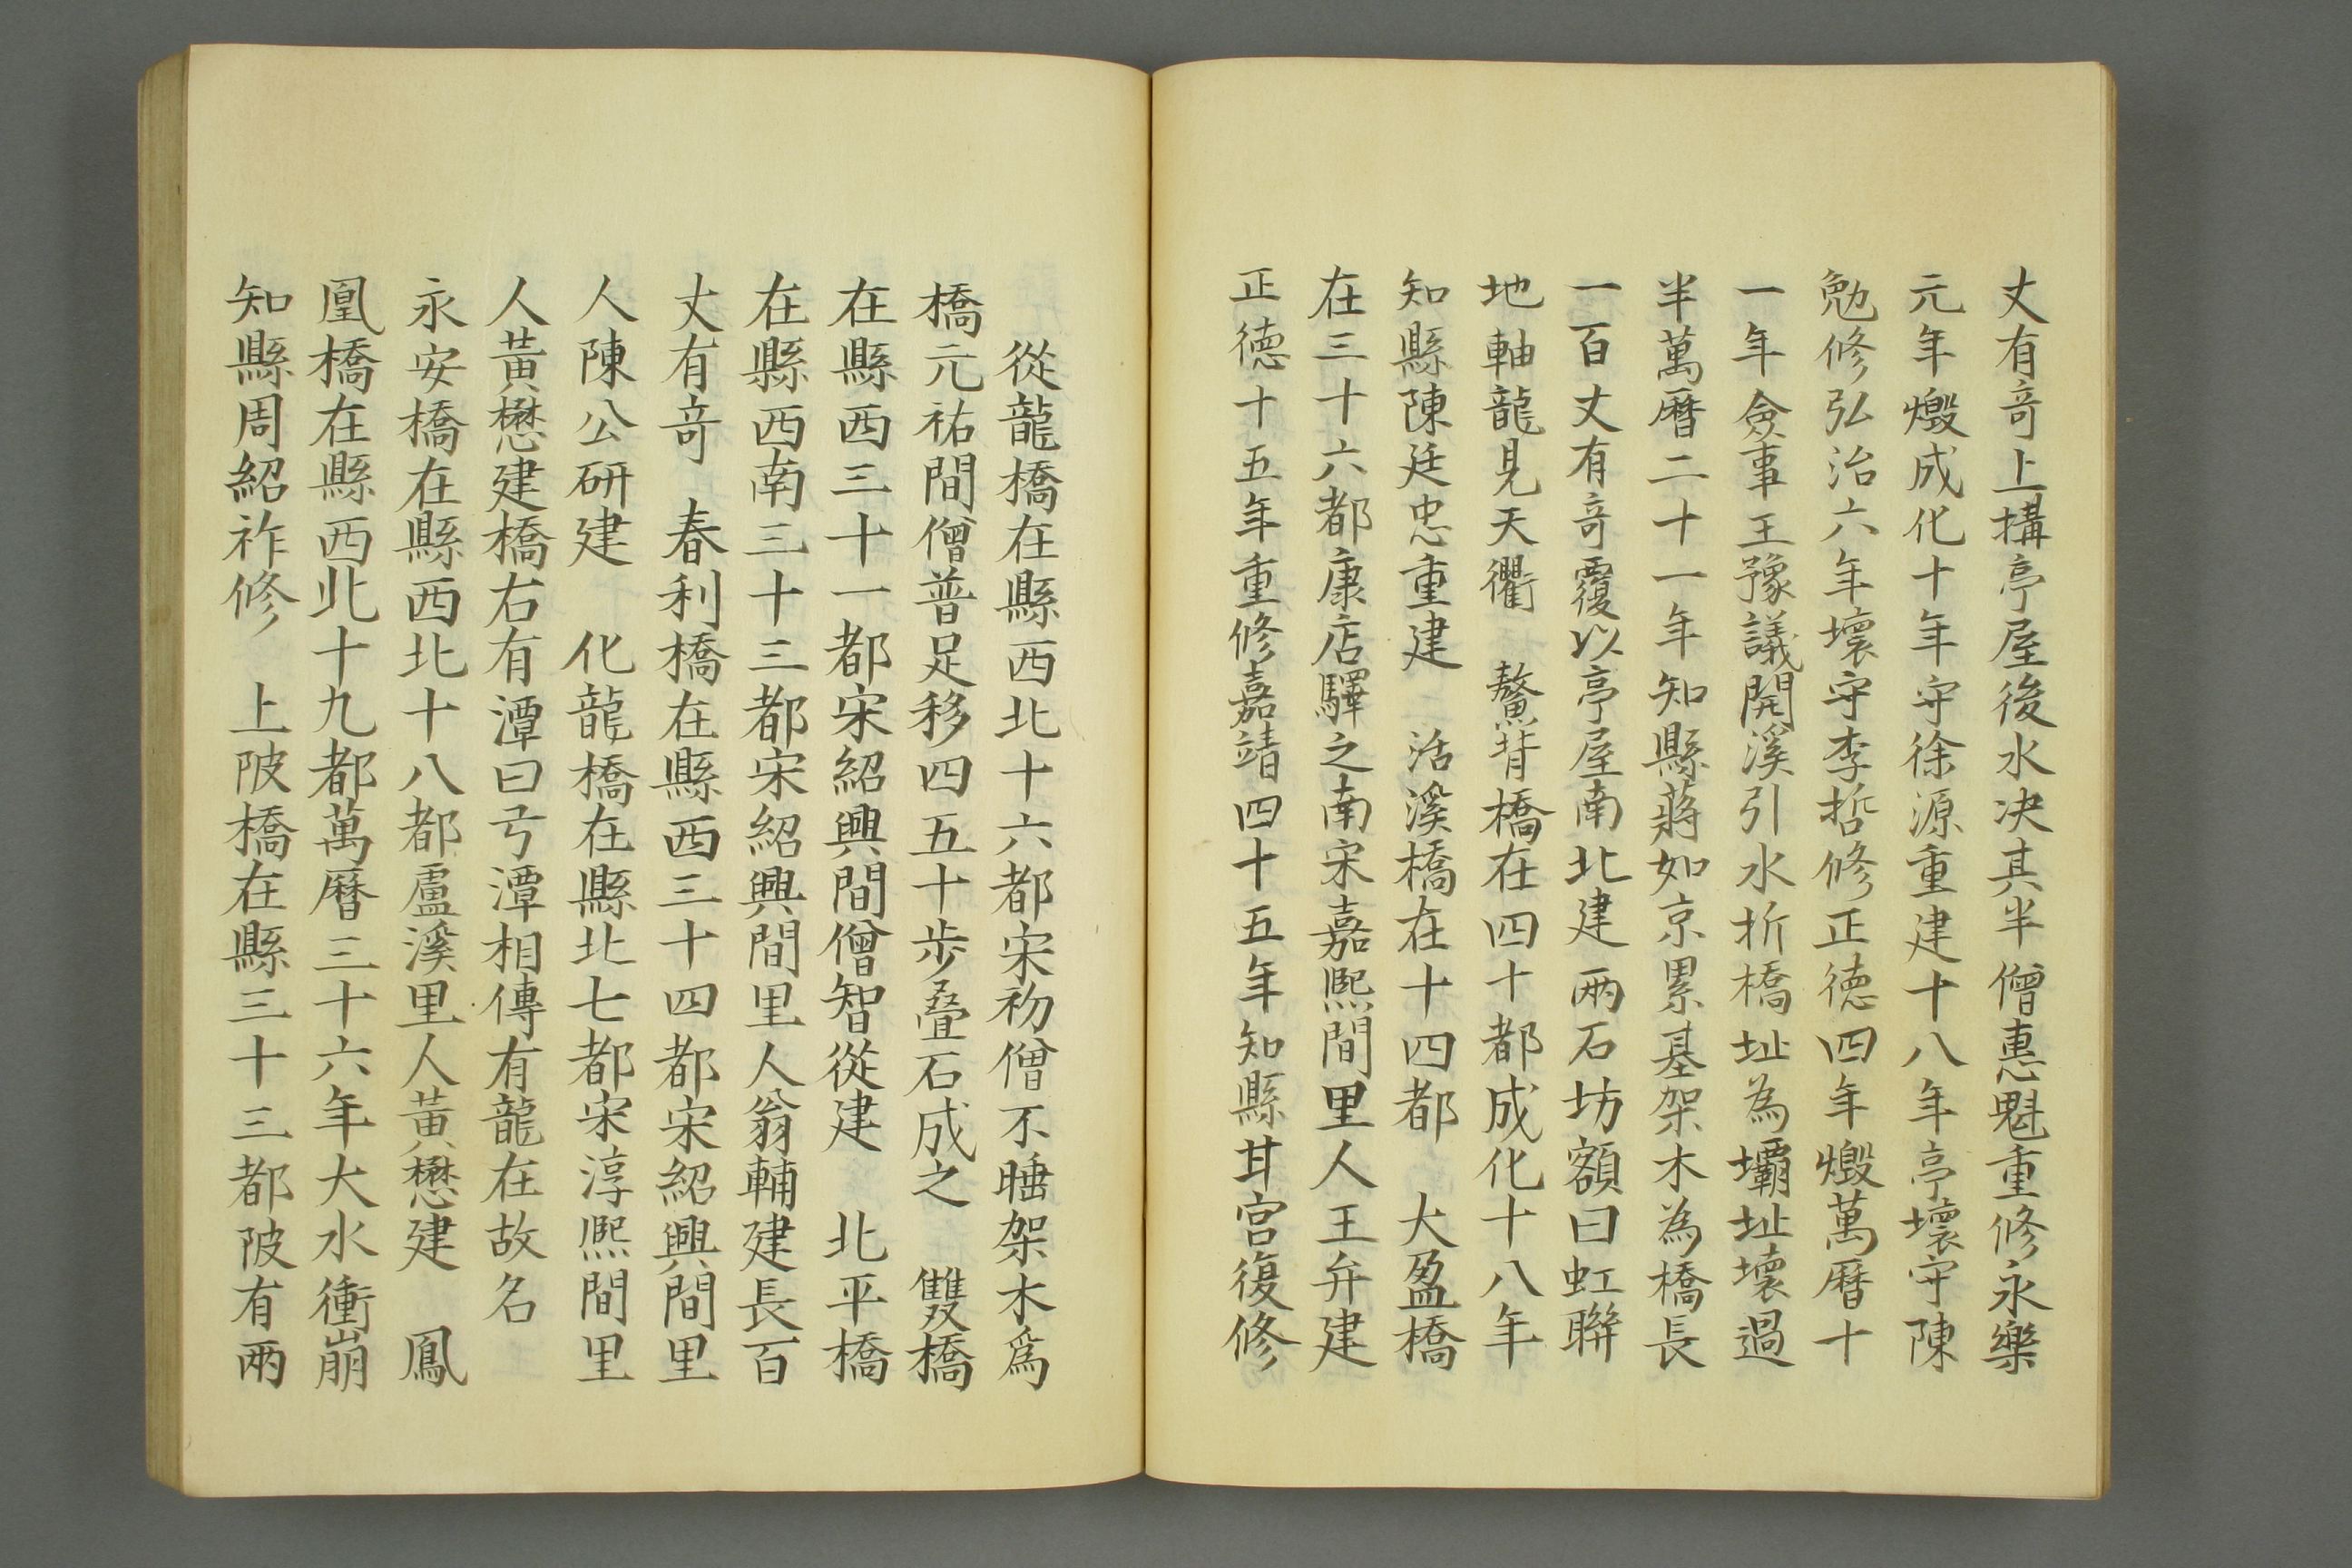 丈有竒上搆亭屋後水决其半僧惠魁重修永樂
元年燬成化十年守徐源重建十八年亭壞守陳
勉修弘治六年壞守李哲修正徳四年燬萬曆十
一年僉事王豫議開溪引水折橋址為壩址壞過
半萬曆二十一年知縣蔣如京累基架木為橋長
一百丈有竒覆以亭屋南北建兩石坊額曰虹聨
地軸龍見天衢　鰲背橋在四十都成化十八年
知縣陳廷忠重建　活溪橋在十四都　大盈橋
在三十六都康店驛之南宋嘉熈間里人王弁建
正德十五年重修嘉靖四十五年知縣甘宮復修
從龍橋在縣西北十六都宋初僧不睡架木爲
橋元祐間僧普足移四五十歩叠石成之　雙橋
在縣西三十一都宋紹興間僧智從建　北平橋
在縣西南三十三都宋紹興間里人翁輔建長百
丈有竒　春利橋在縣西三十四都宋紹興間里
人陳公研建　化龍橋在縣北七都宋淳熈間里
人黃懋建橋右有潭曰弓潭相傳有龍在故名
永安橋在縣西北十八都盧溪里人黃懋建　鳳
凰橋在縣西北十九都萬曆三十六年大水衝崩
知縣周紹祚修　上陂橋在縣三十三都陂有兩